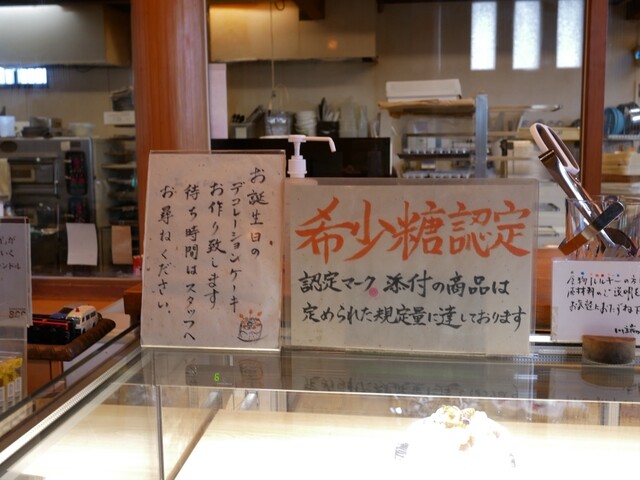 お誕生日の
デコレーションケーキ
お作り致します
待ち時間はスタッフへ
お尋ねください。
希少糖認定
認定マーク 添付の商品は
定められた規定量に達しております
6